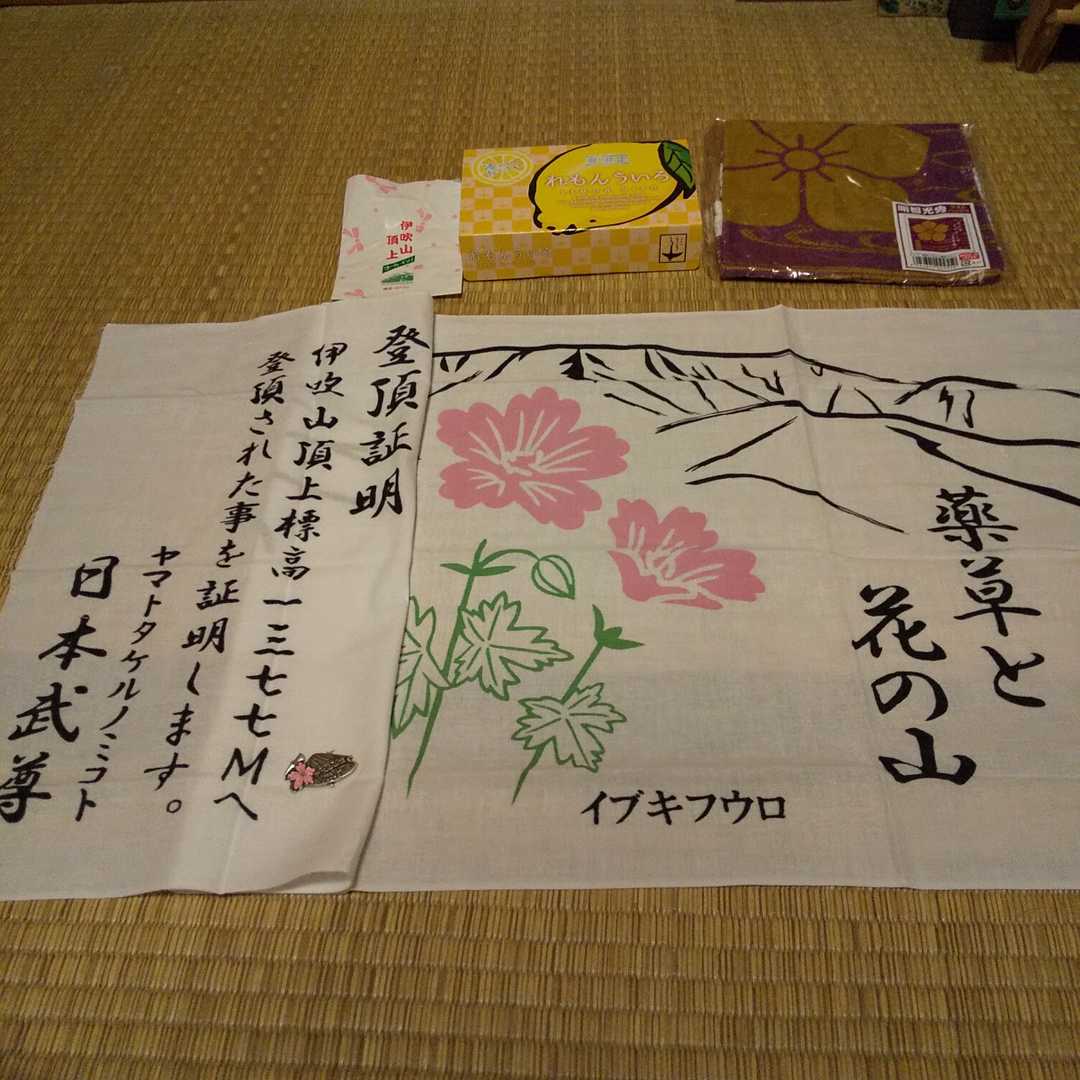 伊吹山
頂上
れもんういろ
明智光秀
登頂証明
伊吹山頂上標高一三七七Mへ
登頂された事を証明します。
ヤマトタケルノミコト
日本武尊
薬草と
花の山
イブキフウロ